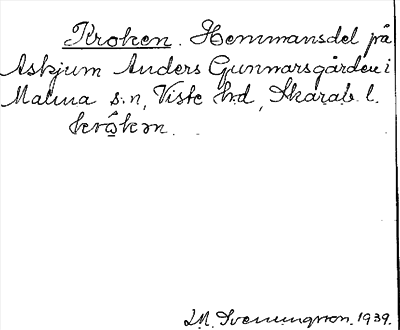 Kroken. Hemmansdel på
Askjum Anders Gunnarsgården i
Malma s:n, Viste hd, Skarab. l.
krö̂kən.
I.M. Svenungsson. 1939.